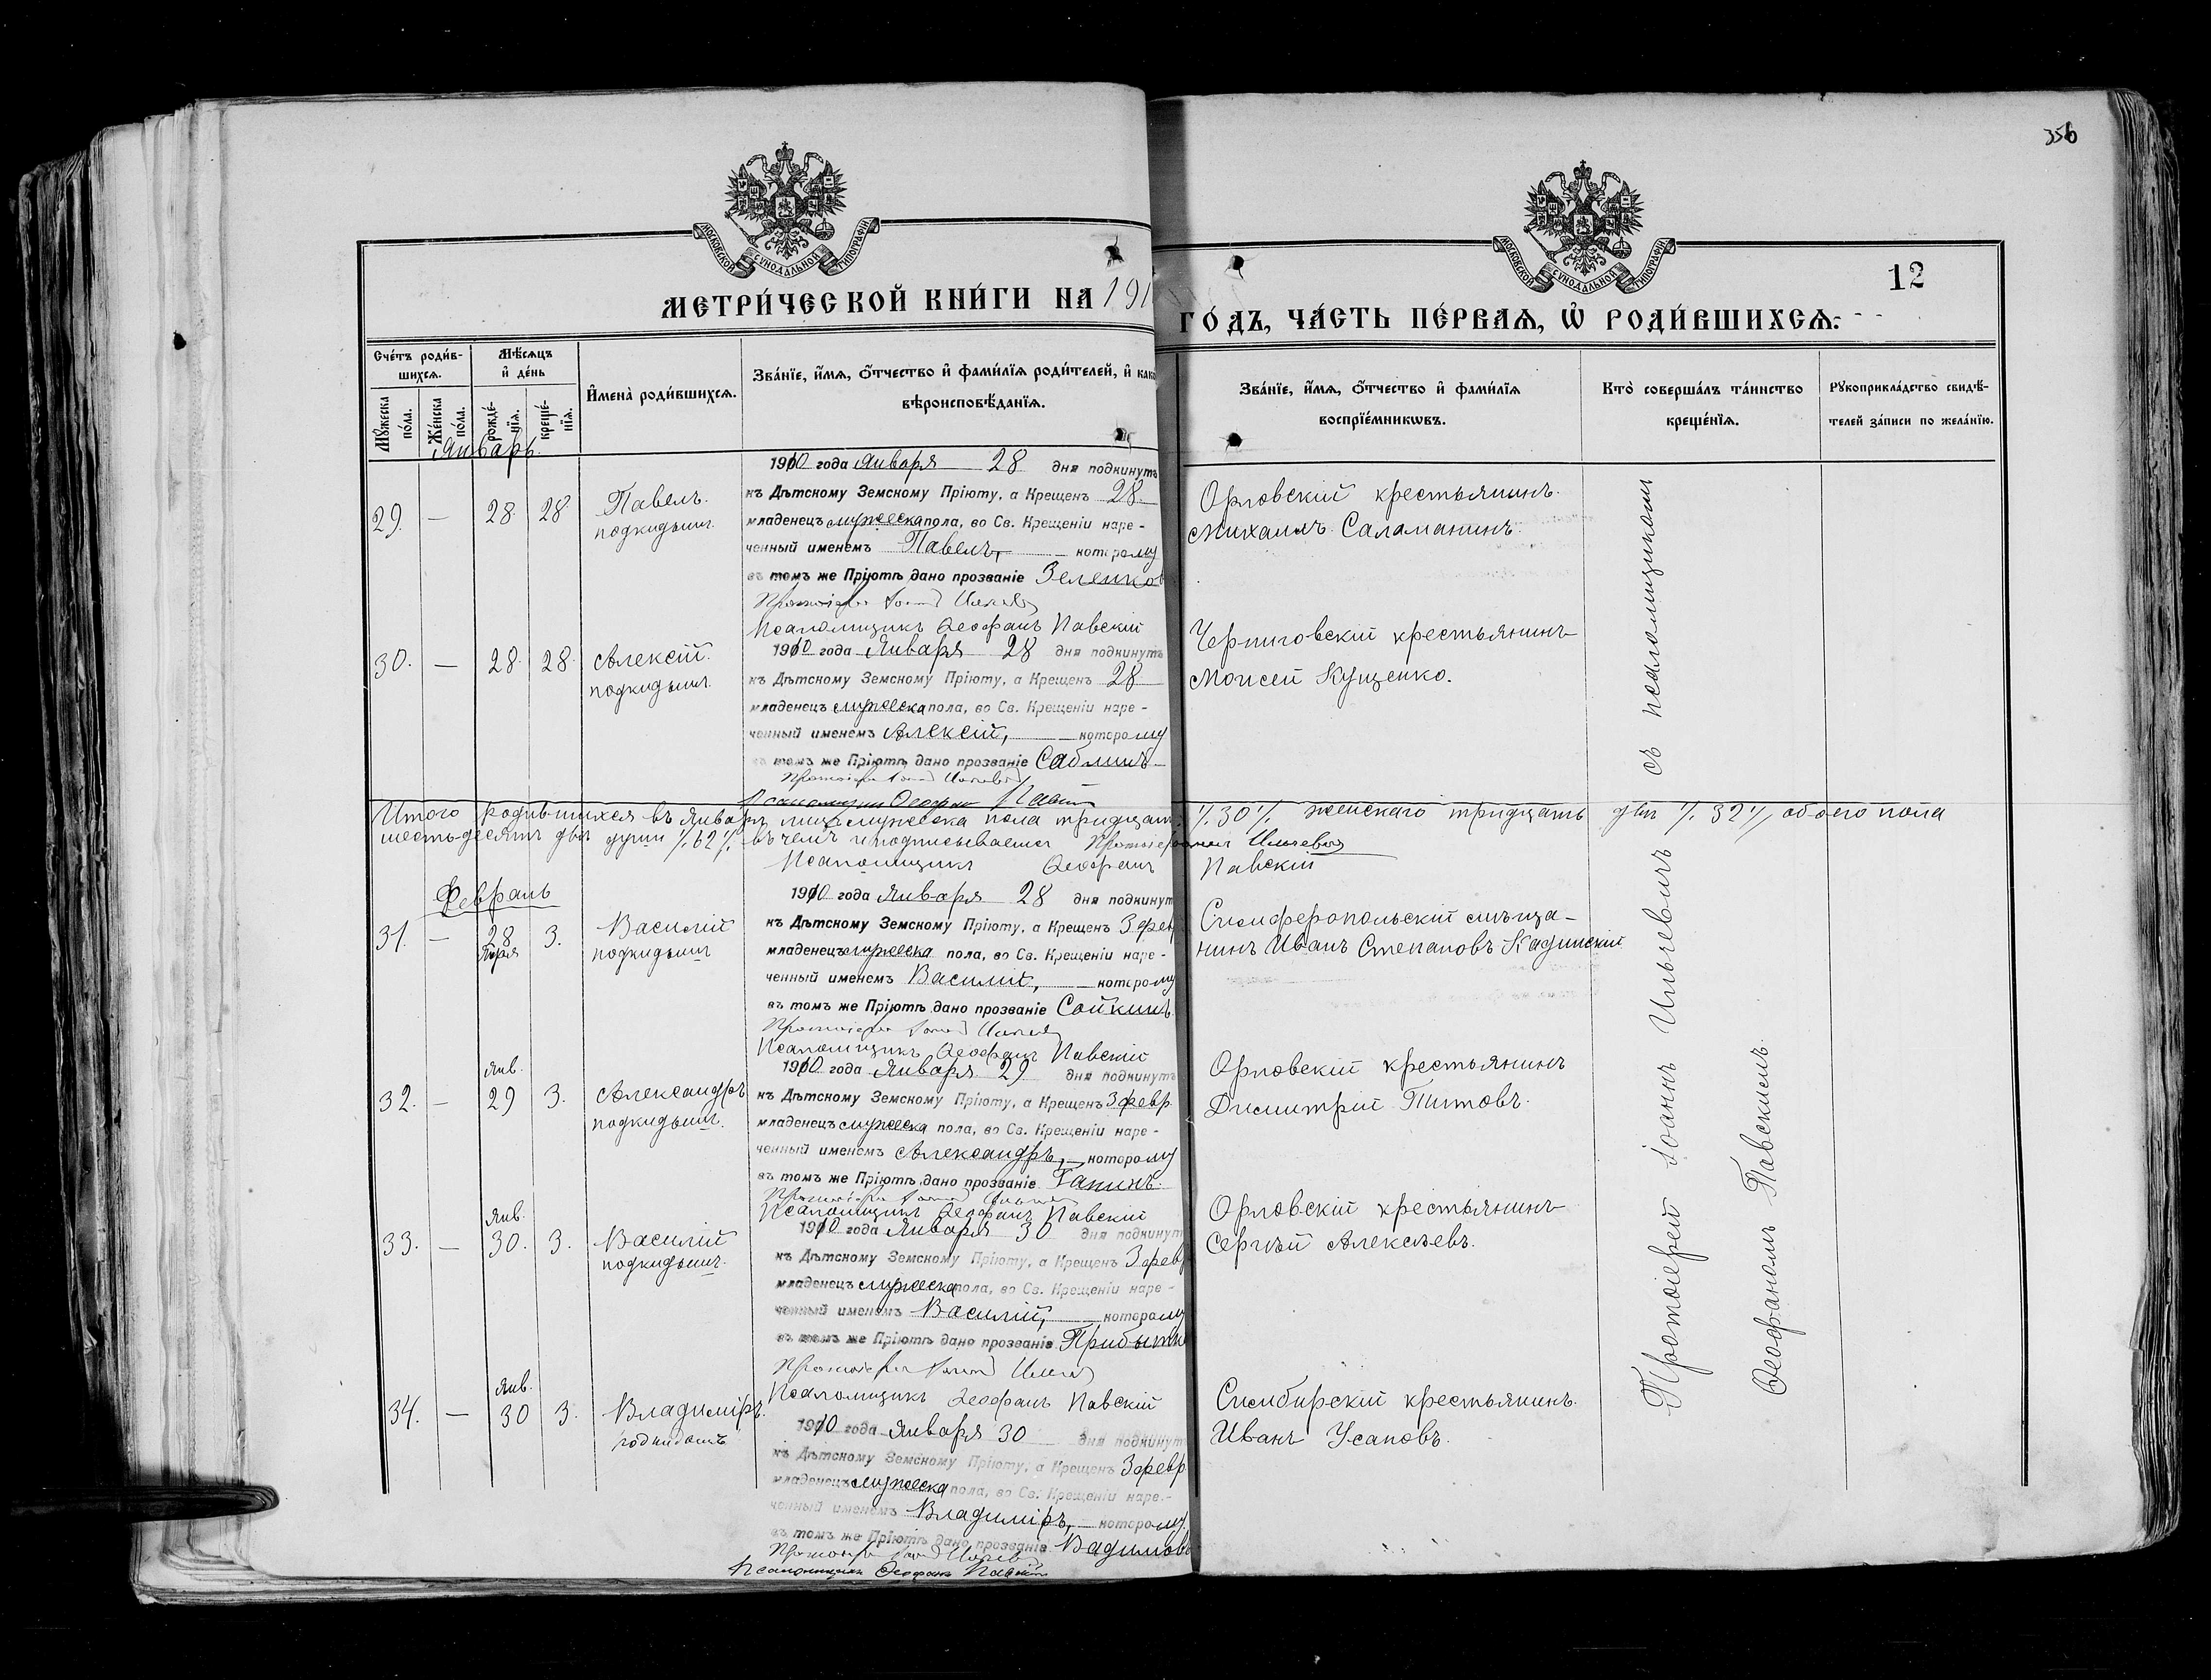 356
12
МОСКОВСКОЙ СѴНОДАЛЬНОЙ ТИПОГРАФІИ
МОСКОВСКОЙ СѴНОДАЛЬНОЙ ТИПОГРАФІИ
МЕТРИ́ЧЕСКОЙ КНИ́ГИ НА 191
ГО́ДЪ, ЧА́СТЬ ПЕ́РВАѦ, Ѽ РОДИ́ВШИХСѦ:
Сче́тъ роди́в-
шихсѧ.
Мꙋ́жеска
по́ла.
Же́нска
по́ла.
Мѣ́сѧцъ
и҆ де́нь
рожде́-
нїѧ.
креще́-
нїѧ.
И҆мена̀ роди́вшихсѧ.
Зва́нїе, и҆́мѧ, ѻ҆́тчество и҆ фами́лїѧ роди́телей, и҆ како
вѣроисповѣ́данїѧ.
Зва́нїе, и҆́мѧ, ѻ҆́тчество и҆ фами́лїѧ
воспрїе́мникѡвъ.
Кто̀ соверша́лъ та́инство
креще́нїѧ.
Рꙋкоприкла́дство свидѣ́-
телей за́писи по жела́нїю.
Январь.
29. — 28. 28. Павелъ.
подкидышъ.
1910 года Января 28 дня подкинутъ
къ Дѣтскому Земскому Пріюту, а Крещенъ 28.
младенецъ мужеска пола, во Св. Крещеніи наре-
ченный именемъ Павелъ, которому
въ томъ же Пріютѣ дано прозваніе Зеленков
Протоіерей Іоаннъ Ильчевичъ
Псаломщикъ Ѳеофанъ Павскій
Орловскій крестьянинъ
Михаилъ Саламанинъ.
30. — 28. 28. Алексій.
подкидышъ.
1910 года Января 28 дня подкинутъ
къ Дѣтскому Земскому Пріюту, а Крещенъ 28
младенецъ мужеска пола, во Св. Крещеніи наре-
ченный именемъ Алексій, которому
въ томъ же Пріютѣ дано прозваніе Саблинъ
Протоіерей Іоаннъ Ильчевичъ
Псаломщикъ Ѳеофанъ Павскій
Черниговскій крестьянинъ
Моисей Кущенко.
Итого родившихся въ Январѣ лицъ мужеска пола тридцать /. 30 /. женскаго тридцать двѣ /. 32 /, обоего пола
шесть-десятъ двѣ души /. 62 /. въ чемъ и подписываемся Протоіерей Іоаннъ Ильчевичъ
Псаломщикъ Ѳеофанъ Павскій
Февраль
31. — 28 Янря 3. Василій
подкидышъ
1910 года Января 28 дня подкинут
къ Дѣтскому Земскому Пріюту, а Крещенъ 3 фев
младенецъ мужеска пола, во Св. Крещеніи наре-
ченный именемъ Василій, которому
въ томъ же Пріютѣ дано прозваніе Сойкинъ
Протоіерей Іоаннъ Ильчевичъ
Псаломщикъ Ѳеофанъ Павскій
Симферопольскій мѣща-
нинъ Иванъ Степановъ Кадинскій
32. — Янв. 29 3. Александръ
подкидышъ.
1910 года Января 29 дня подкинутъ
къ Дѣтскому Земскому Пріюту, а Крещенъ 3 февр.
младенецъ мужеска пола, во Св. Крещеніи наре-
ченный именемъ Александръ, которому
въ томъ же Пріютѣ дано прозваніе Ганинъ.
Протоіерей Іоаннъ Ильчевичъ
Псаломщикъ Ѳеофанъ Павскій
Орловскій крестьянинъ
Димитрій Титовъ.
33. — Янв. 30. 3. Василій
подкидышъ.
1910 года Января 30 дня подкинут
къ Дѣтскому Земскому Пріюту, а Крещенъ 3 фев
младенецъ мужеска пола, во Св. Крещеніи наре-
ченный именемъ Василій, которому
въ томъ же Пріютѣ дано прозваніе Прибытк
Протоіерей Іоаннъ Ильчевичъ
Псаломщикъ Ѳеофанъ Павскій
Орловскій крестьянинъ
Сергѣй Алексѣевъ.
34. — Янв. 30 3. Владиміръ.
подкидышъ
1910 года Января 30 дня подкинут
къ Дѣтскому Земскому Пріюту, а Крещенъ 3 февр
младенецъ мужеска пола, во Св. Крещеніи наре-
ченный именемъ Владиміръ, которому
въ томъ же Пріютѣ дано прозваніе Вадимовъ
Протоіерей Іоаннъ Ильчевичъ
Псаломщикъ Ѳеофанъ Павскій
Симбирскій крестьянинъ.
Иванъ Усаповъ.
Протоіерей Іоаннъ Ильчевичъ съ псаломщикомъ
Ѳеофаномъ Павскимъ.